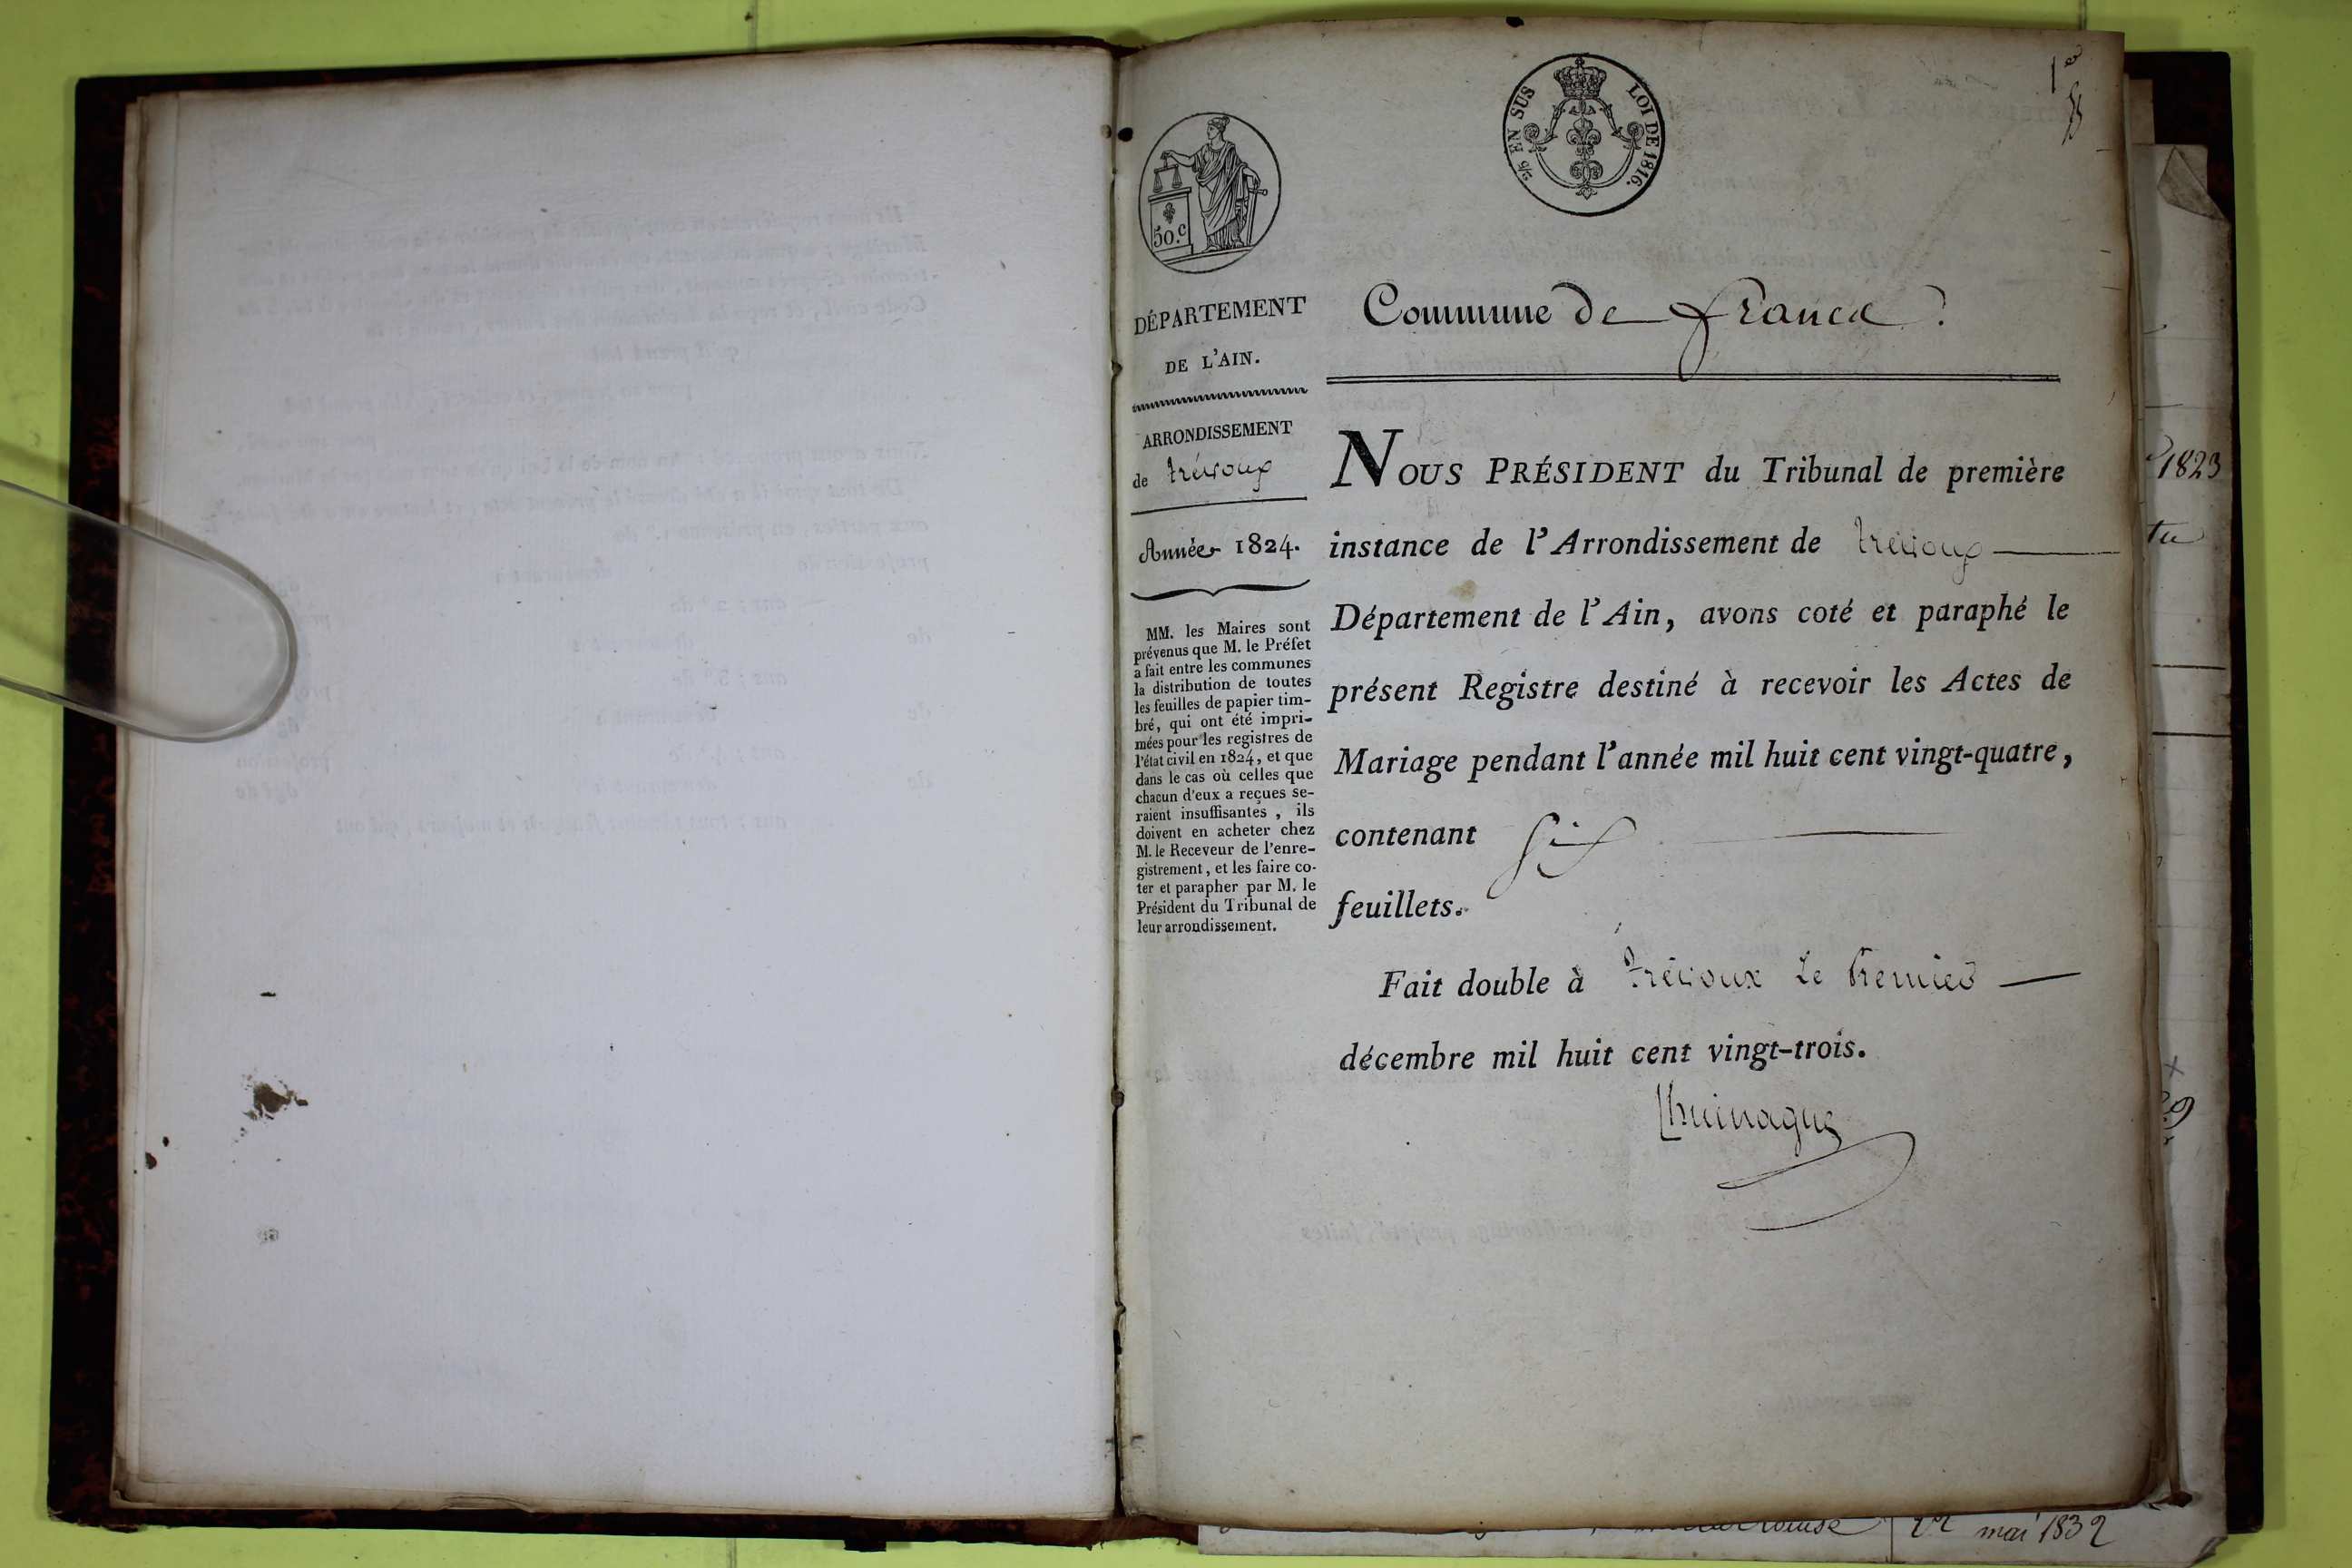 1er
2/5 EN SUS LOI DE 1816.
50.c
DÉPARTEMENT
DE L'AIN.
ARRONDISSEMENT
de trévoux
Année 1824.
MM. les Maires sont
prévenus que M. le Préfet
a fait entre les communes
la distribution de toutes
les feuilles de papier tim-
bré, qui ont été impri-
mées pour les registres de
l'état civil en 1824, et que
dans le cas où celles que
chacun d'eux a reçues se-
raient insuffisantes, ils
doivent en acheter chez
M. le Receveur de l'enre-
gistrement, et les faire co-
ter et parapher par M. le
Président du Tribunal de
leur arrondissement.
Commune de france
NOUS PRÉSIDENT du Tribunal de première
instance de l'Arrondissement de trévoux
Département de l'Ain, avons coté et paraphé le
présent Registre destiné à recevoir les Actes de
Mariage pendant l'année mil huit cent vingt-quatre,
contenant six
feuillets.
Fait double à trévoux le Premier
décembre mil huit cent vingt-trois.
1823
mai 1832